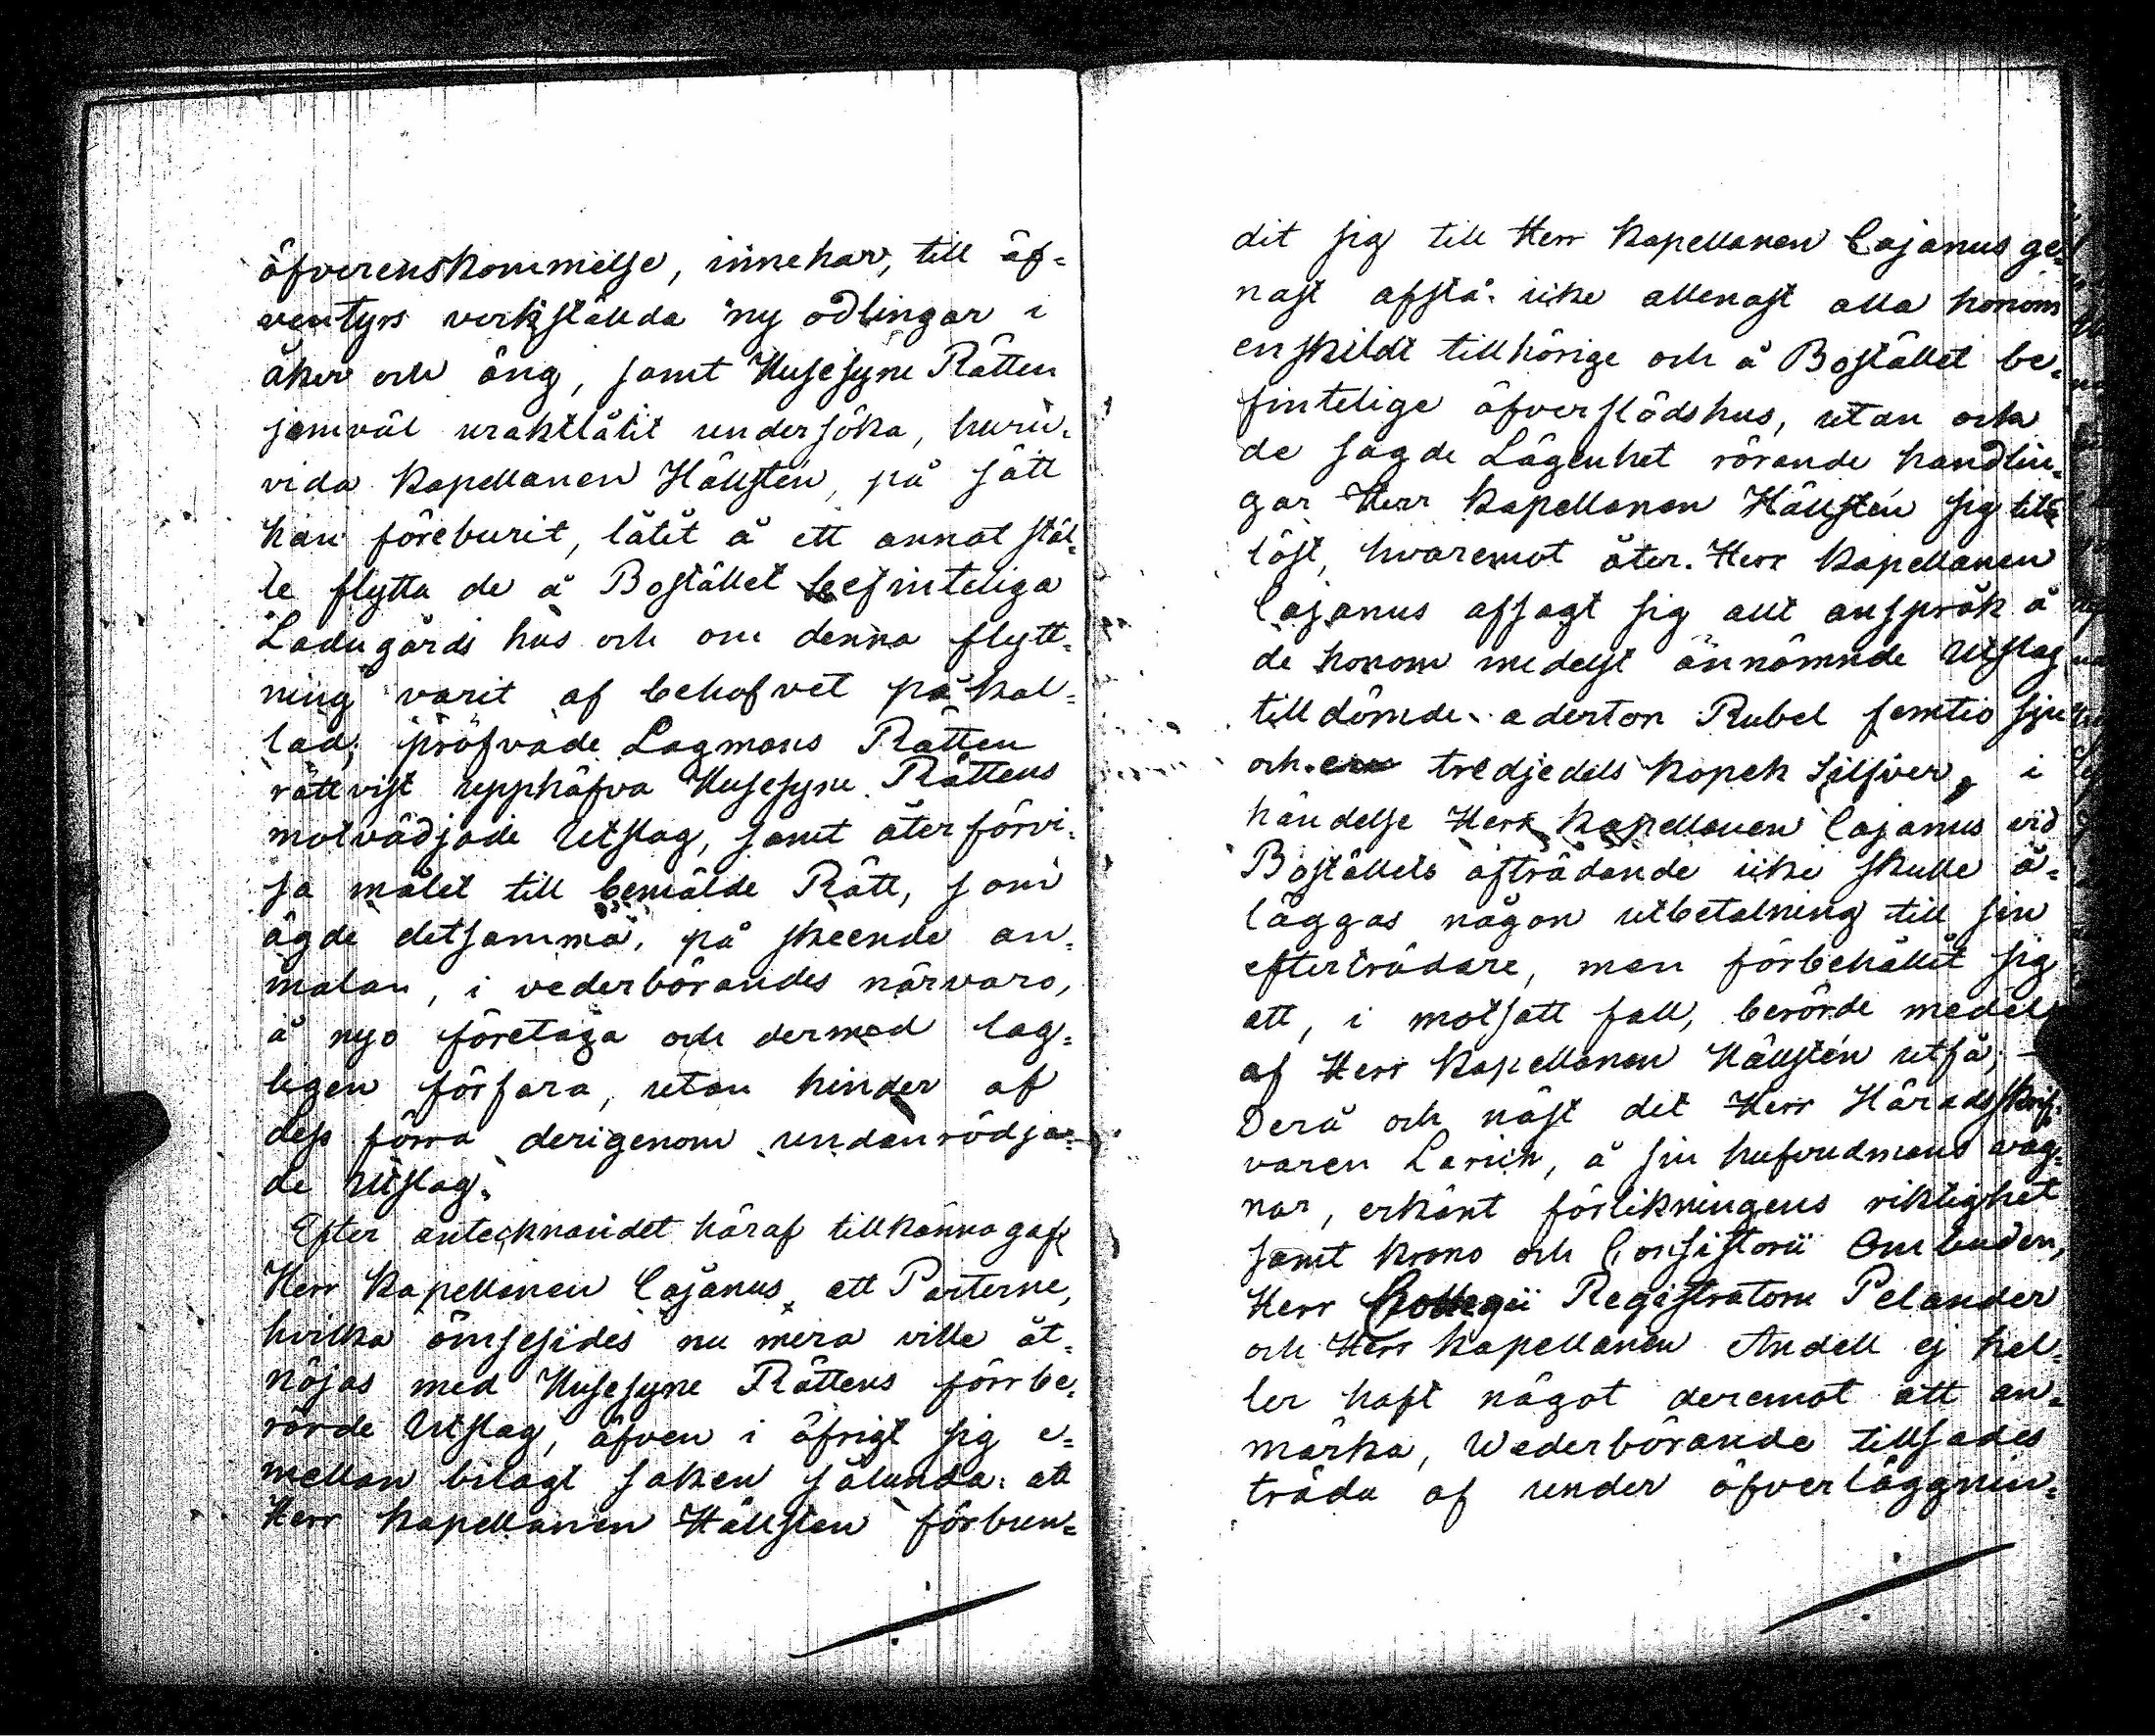 öfverenskommelse, innehar, till äf=
ventyrs verkställda ny odlingar i
åker och äng, samt Husesyne Rätten
jemväl uraktlåtit undersöka, huru=
vida Kapellanen Hällstén, på sätt
han föreburit, låtit å ett annat stäl=
le flytta de å Bostället befinteliga
Ladugårds hus och om denna flytt=
ning varit af behofvet påkal=
lad; pröfvade Lagmans Rätten
rättvist upphäfva Husesyne Rättens
motvädjade Utslag, samt återförvi=
sa målet till bemälde Rätt, som
ägde detsamma, på skeende an=
mälan, i vederbörandes närvaro,
å nyo företaga och dermed lag=
ligen förfara, utan hinder af
dess förra derigenom undanrödja=
de Utslag.
Efter antecknandet häraf tillkännagaf
Herr Kapellanen Cajanus, att Parterne,
hvilka ömsesides nu mera ville åt=
nöjas med Husesyne Rättens förrbe=
rörde Utslag, äfven i öfrigt sig e=
mellan bilagt saken sålunda: att
Herr Kapellanen Hällsten förbun=
dit sig till Herr Kapellanen Cajanus ge=
nast afstå icke allenast alla honom
enskildt tillhörige och å Bostället be=
fintelige öfverflödshus, utan ock
de sagde Lägenhet rörande handlin=
gar Herr Kapellanen Hällstén sig till
löst, hvaremot åter Herr Kapellanen
Cajanus afsagt sig allt anspråk å
de honom medelst ännämnde Utslag
tilldömde aderton Rubel femtio sju
och en tredjedels Kopek Silfver, i
händelse Herr Kapellanen Cajanus vid
Boställets afträdande icke skulle å=
läggas någon utbetalning till sin
efterträdare, men förbehållit sig
att, i motsatt fall, berörde medel
af Herr Kapellanen Hällstén utfå; —
Derå och näst det Herr Häradsskrif=
varen Larich, å sin hufvudmans väg=
nar, erkänt förlikningens riktighet
samt Krono och Consistorii Ombuden,
Herr Collegii Registratorn Pelander
och Herr Kapellanen Andell ej hel=
ler haft något deremot att an=
märka, Wederbörande tillsades
träda af under öfverläggnin=